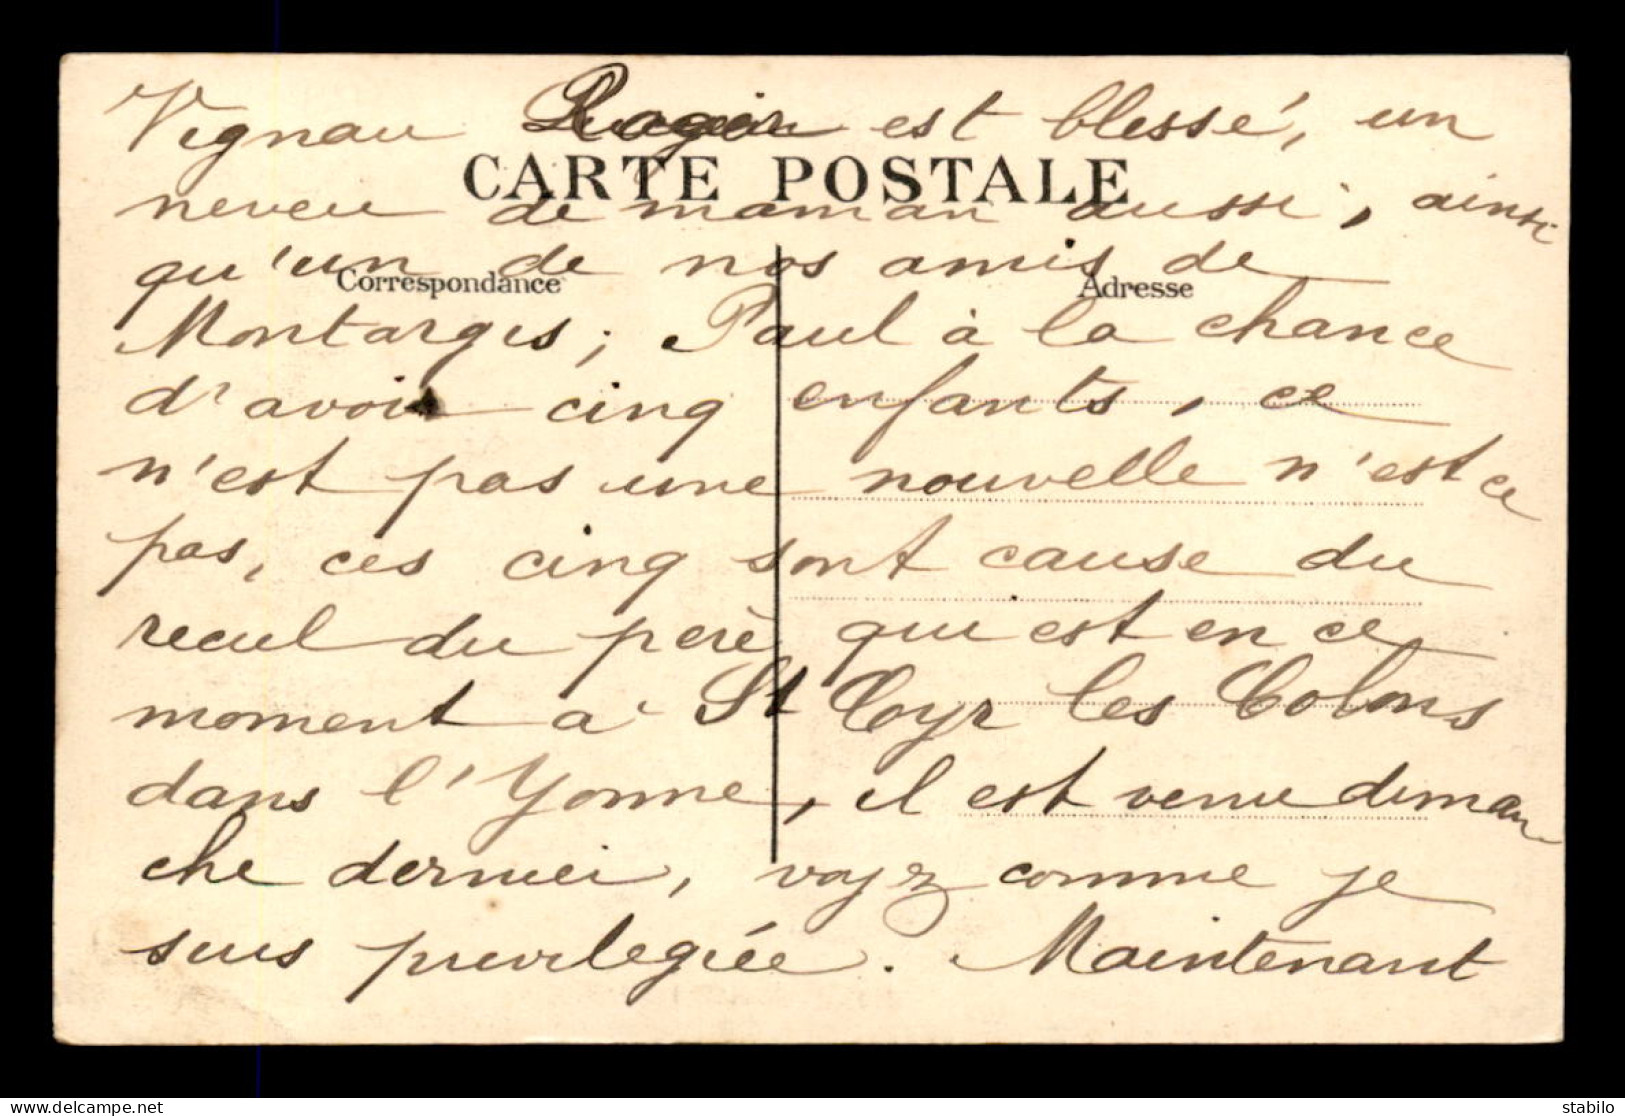 Vignau Roger est blessé, un
CARTE POSTALE
neveu de maman aussi, ainsi
qu'un de nos amis de
Correspondance
Adresse
Montargis; Paul à la chance
d'avoir cinq enfants, ce
n'est pas une nouvelle n'est ce
pas, ces cinq sont cause du
recul du perè qui est en ce
moment a St Cyr les Colons
dans l'Yonne, il est venu diman
che dernier, voyez comme je
suis privilegiée. Maintenant
stabilo